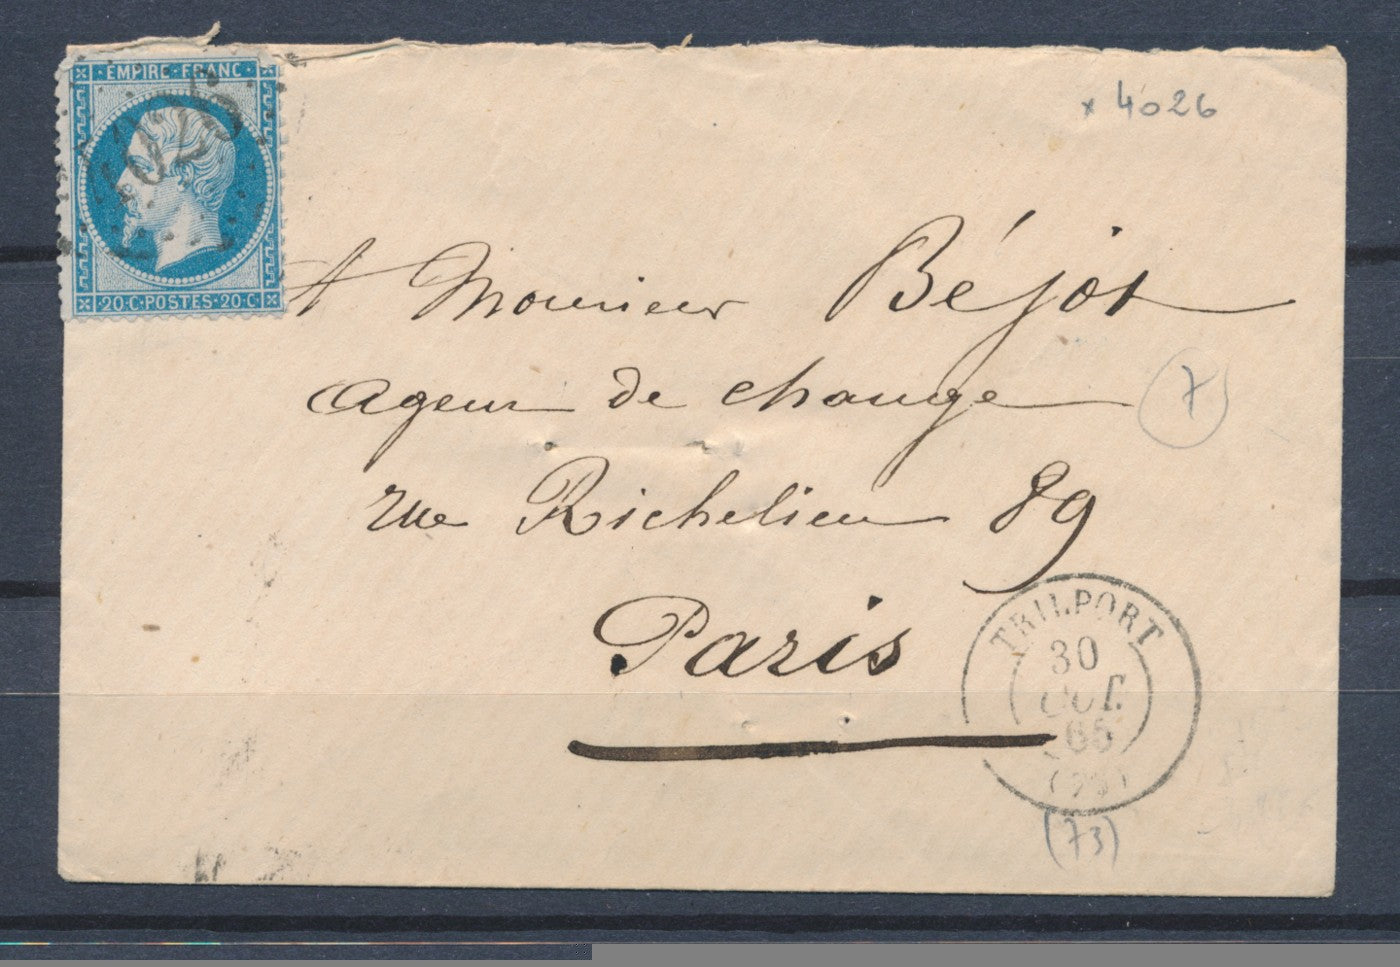 EMPIRE FRANC
4026
20 C POSTES 20 C
× 4026
A Monsieur Béjot
agent de change
7
rue Richelieu 89
Paris
TRILPORT
30
OCT.
65
(73)
(73)